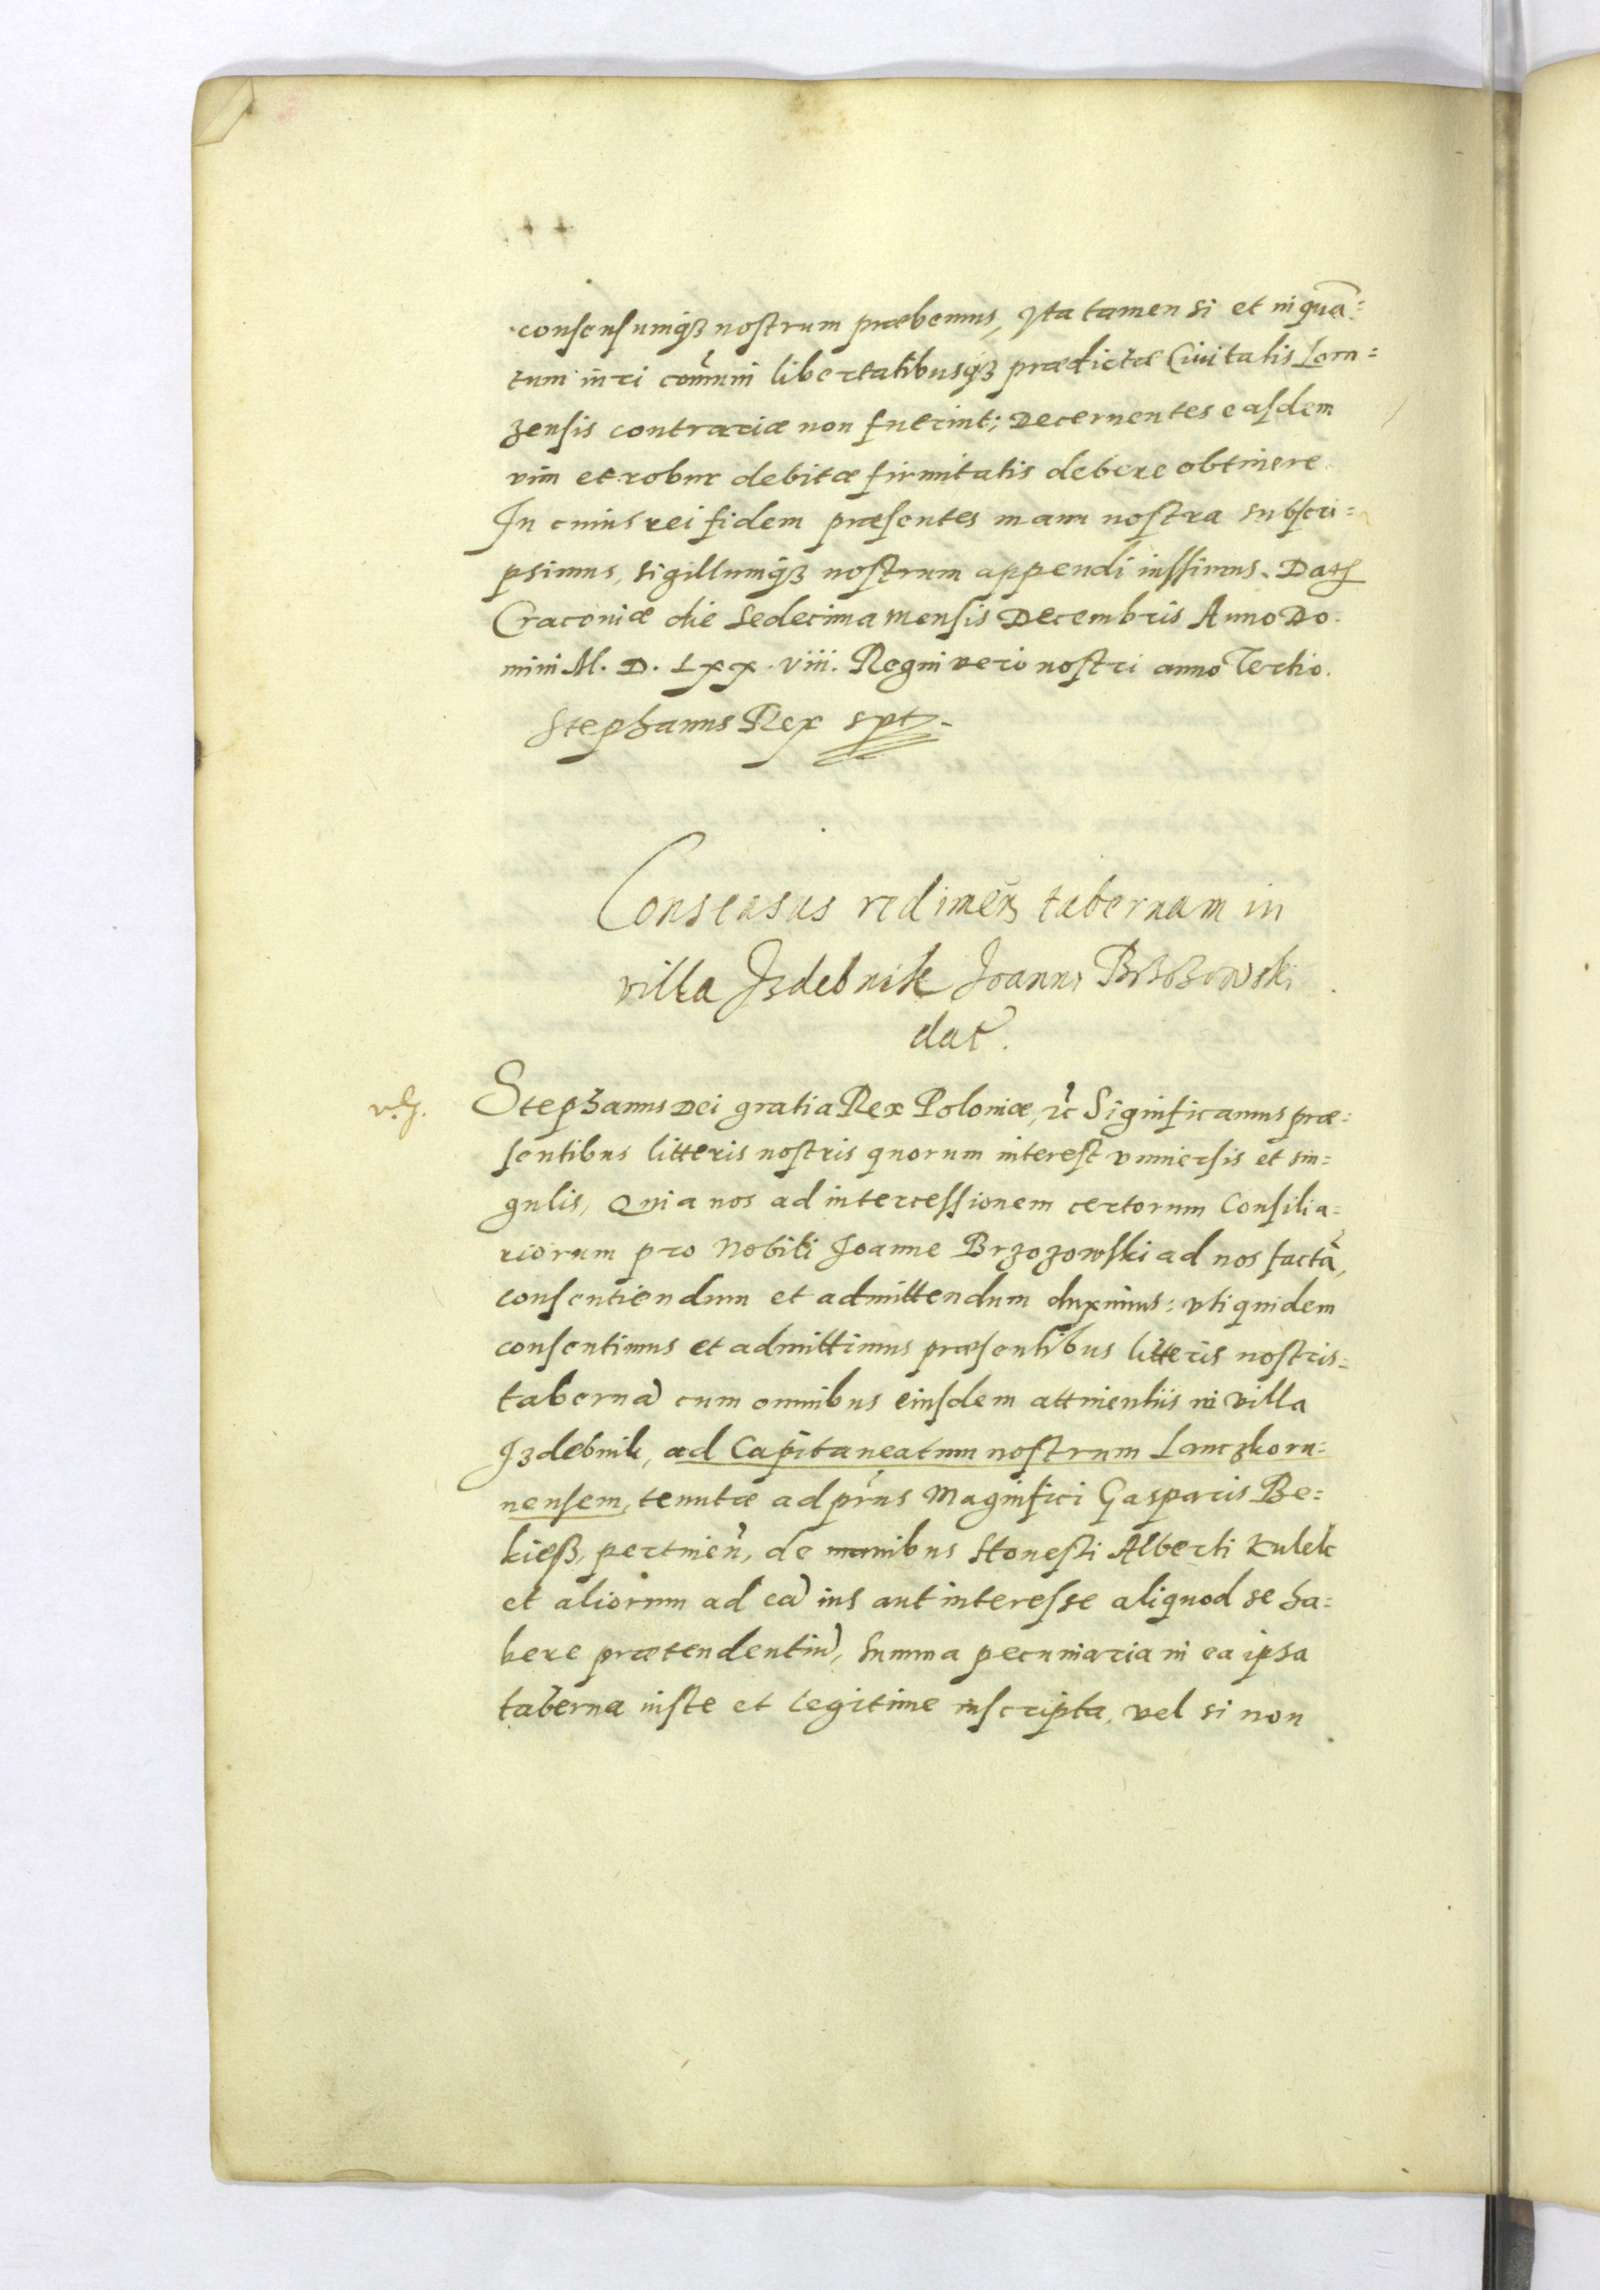 consensumqꝫ nostrum præbemus, Ita tamen si et in quā=
tum iuri com̃uni libertatibusqꝫ prædictæ Ciuitatis Lom=
zensis contrariæ non fuerint; Decernentes easdem
vim et robur debitæ firmitatis debere obtinere.
In cuius rei fidem præsentes manu nostra subscri=
psimus, sigillumqꝫ nostrum appendi iussimus. Datꝫ
Cracouiæ die sedecima mensis Decembris Anno Do-
mini M. D. Lxx. viii. Regni vero nostri anno Tertio.
Stephanus Rex spt.
Consensus redimen̄ tabernam in
villa Izdebnik Joanni Brzozowski
dat̃.
Stephanus Dei gratia Rex Poloniæ, ꝛc̃ Significamus præ=
sentibus litteris nostris quorum interest vniuersis et sin=
gulis, Quia nos ad intercessionem certorum Consilia=
riorum pro Nobili Joanne Brzozowski ad nos factã,
consentiendum et admittendum duximus: vti quidem
consentimus et admittimus præsentibus litteris nostris=
tabernã cum omnibus eiusdem attinentiis in villa
Izdebnik, ad Capitaneatum nostrum Lanczkoru=
nensem, tenutæ ad prñs Magnifici Gasparis Be=
kieß, pertineñ, de manibus Honesti Alberti Kulek
et aliorum ad eã ius aut interesse aliquod se ha=
bere prætendentiũ, summa pecuniaria in ea ipsa
taberna iuste et legitime inscripta, vel si non